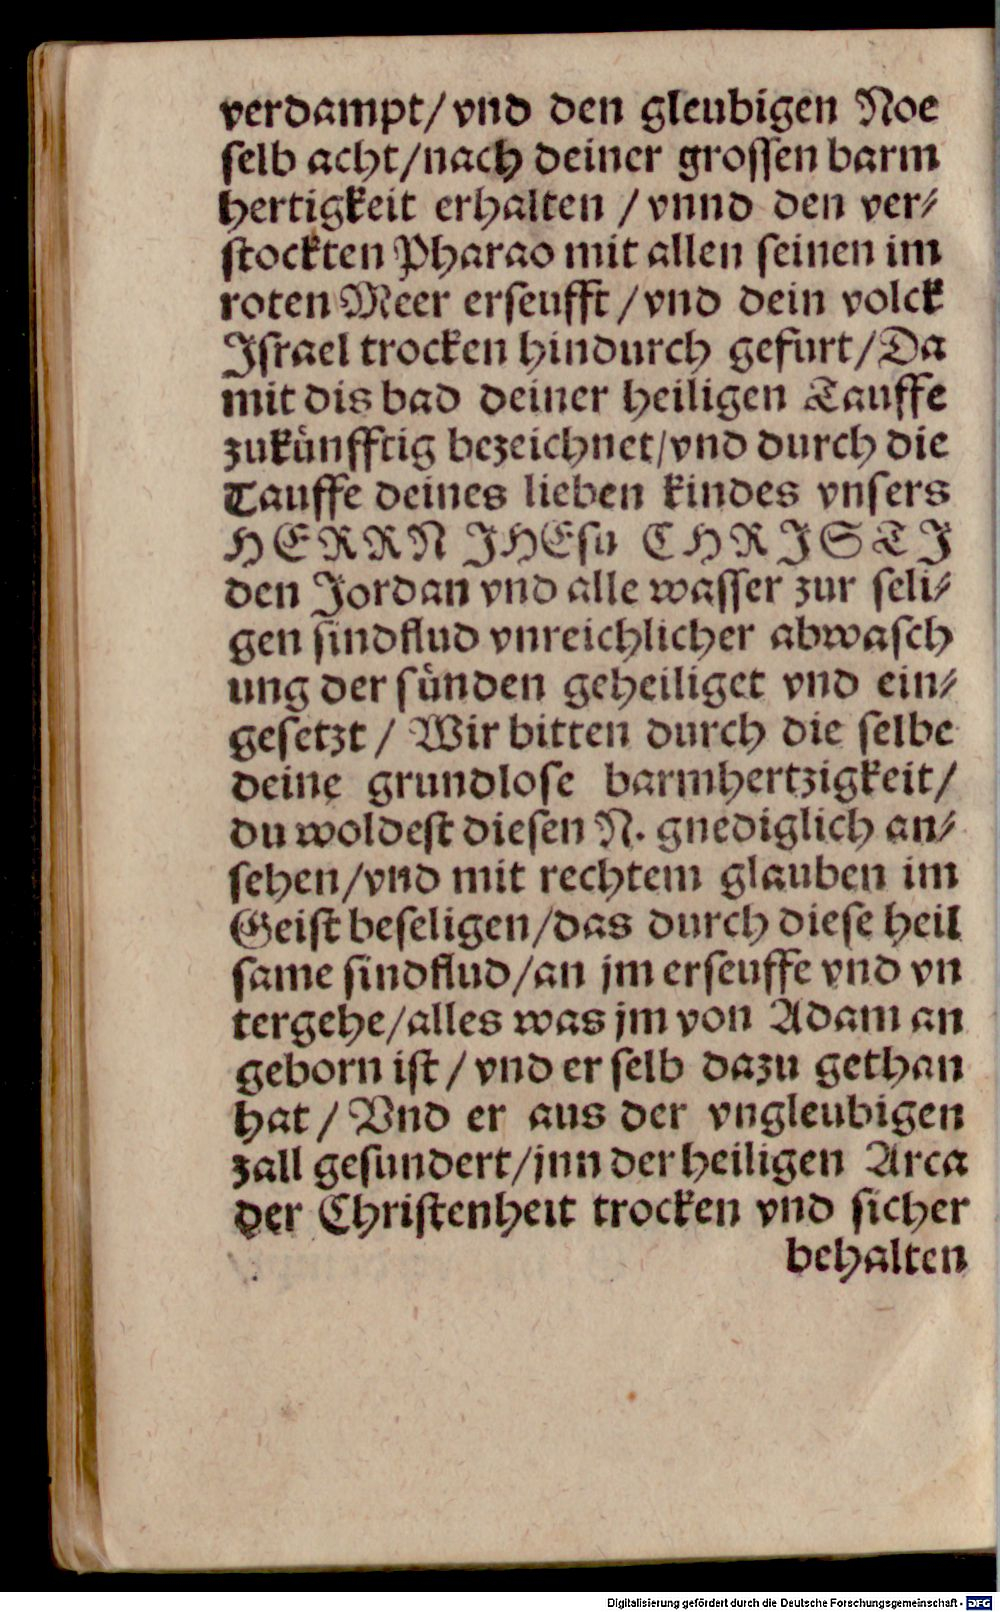 verdampt/ vnd den gleubigen Noe
selb acht/nach deiner grossen barm
hertigkeit erhalten / vnnd den ver⸗
stockten Pharao mit allen seinen im
roten Meer erseufft / vnd dein volck
Israel trocken hindurch gefurt/Da
mit dis bad deiner heiligen Tauffe
zukünfftig bezeichnet/vnd durch die
Tauffe deines lieben kindes vnsers
HERRN JHEsu CHRISTI
den Jordan vnd alle wasser zur seli⸗
gen sindflud vnreichlicher abwasch
ung der sünden geheiliget vnd ein⸗
gesetzt / Wir bitten durch die selbe
deine grundlose barmhertzigkeit/
du woldest diesen N. gnediglich an⸗
sehen/vnd mit rechtem glauben im
Geist beseligen/das durch diese heil
same sindflud/an jm erseuffe vnd vn
tergehe/alles was jm von Adam an
geborn ist / vnd er selb dazu gethan
hat / Vnd er aus der vngleubigen
zall gesundert/jnn der heiligen Arca
der Christenheit trocken vnd sicher
behalten
Digitalisierung gefördert durch die Deutsche Forschungsgemeinschaft - DFG